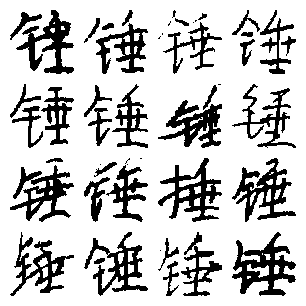 锤锤锤锤
锤锤锤锤
锤锤捶锤
锤锤锤锤